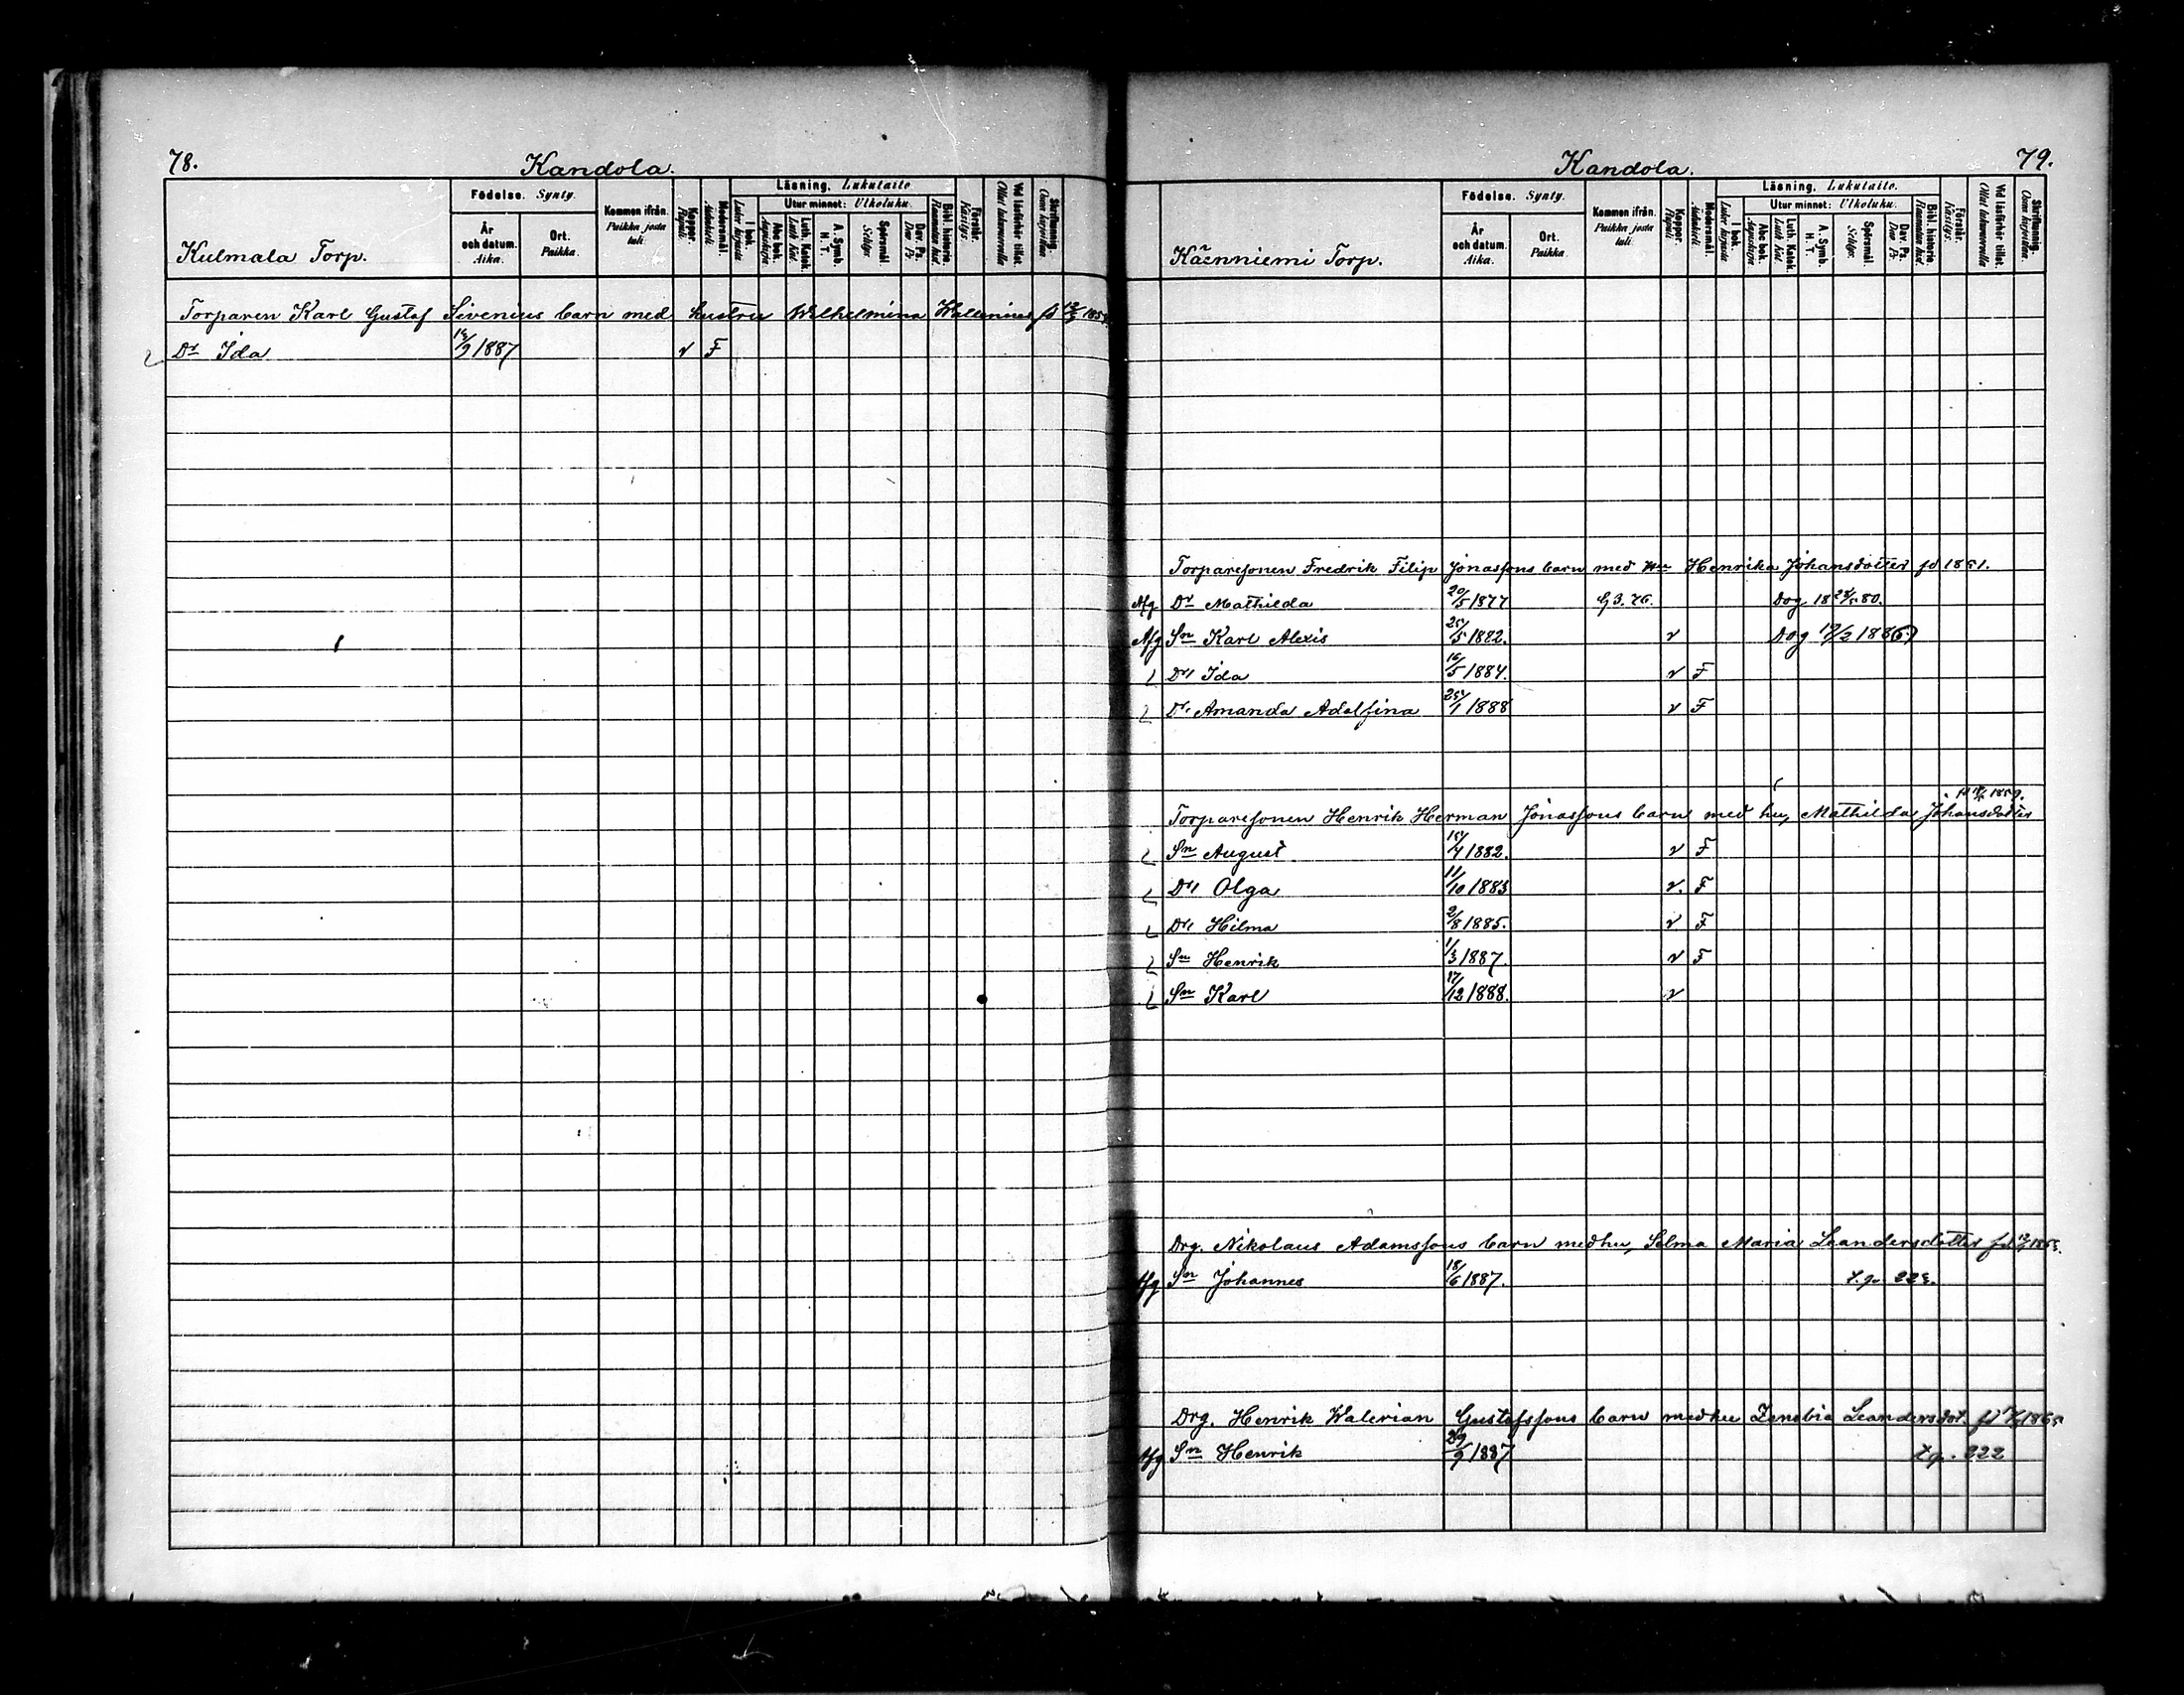 78.
Kandola.
Kulmala Torp.
Födelse. Synty.
År och datum. Aika.
Ort. Paikka.
Kommen ifrån. Paikka josta tuli.
Koppor. Rupuli.
Modersmål. Äidinkieli.
Läsning. Lukutaito
I bok.
Utur minnet: Ulkoluku.
Abc bok.
Luth. Katek.
A. Symb. H. T.
Spörsmål.
Dav. Ps.
Bibl. historie.
Förstår. Käsitys.
Vid läsförhör tillst.
Skriftkunnig.
Torparen Karl Gustaf Sivenius barn med hustru Wilhelmina Wallenius fd
Dr Ida 1887 v F
79.
Kandola.
Käenniemi Torp.
Födelse. Synty.
År och datum. Aika.
Ort. Paikka.
Kommen ifrån. Paikka josta tuli.
Koppor. Rupuli.
Modersmål. Äidinkieli.
Läsning. Lukutaito.
I bok.
Utur minnet: Ulkoluku.
Abc bok.
Luth. Katek.
A. Symb. H. T.
Spörsmål.
Dav. Ps.
Bibl. historie.
Förstår. Käsitys.
Vid läsförhör tillst.
Skriftkunnig.
Torparesonen Fredrik Filip Jonassons barn med Henrika Johansdotter fd 1851.
Afg Dr Mathilda 20/5 1877 Dog
Afg Sn Karl Alexis 25/5 1882. v Dog
Dr Ida 16/5 1884. v F
Dr Amanda Adolfina 25/1 1888 v F
Torparesonen Henrik Herman Jonassons barn med hu, Mathilda Johansdotter
Sn August 15/4 1882. v F
Dr Olga 11/10 1883 v. F
Dr Hilma 2/8 1885. v F
Sn Henrik 1/3 1887. v F
Sn Karl 17/12 1888. v
Drg. Nikolaus Adamssons barn med hu, Selma Maria Leandersdotter fd
Afg Sn Johannes 18/6 1887.
Drg. Henrik Walerian Gustafssons barn med hu Zenobia Leandersdot. fd
Afg Sn Henrik 29/9 1887 222